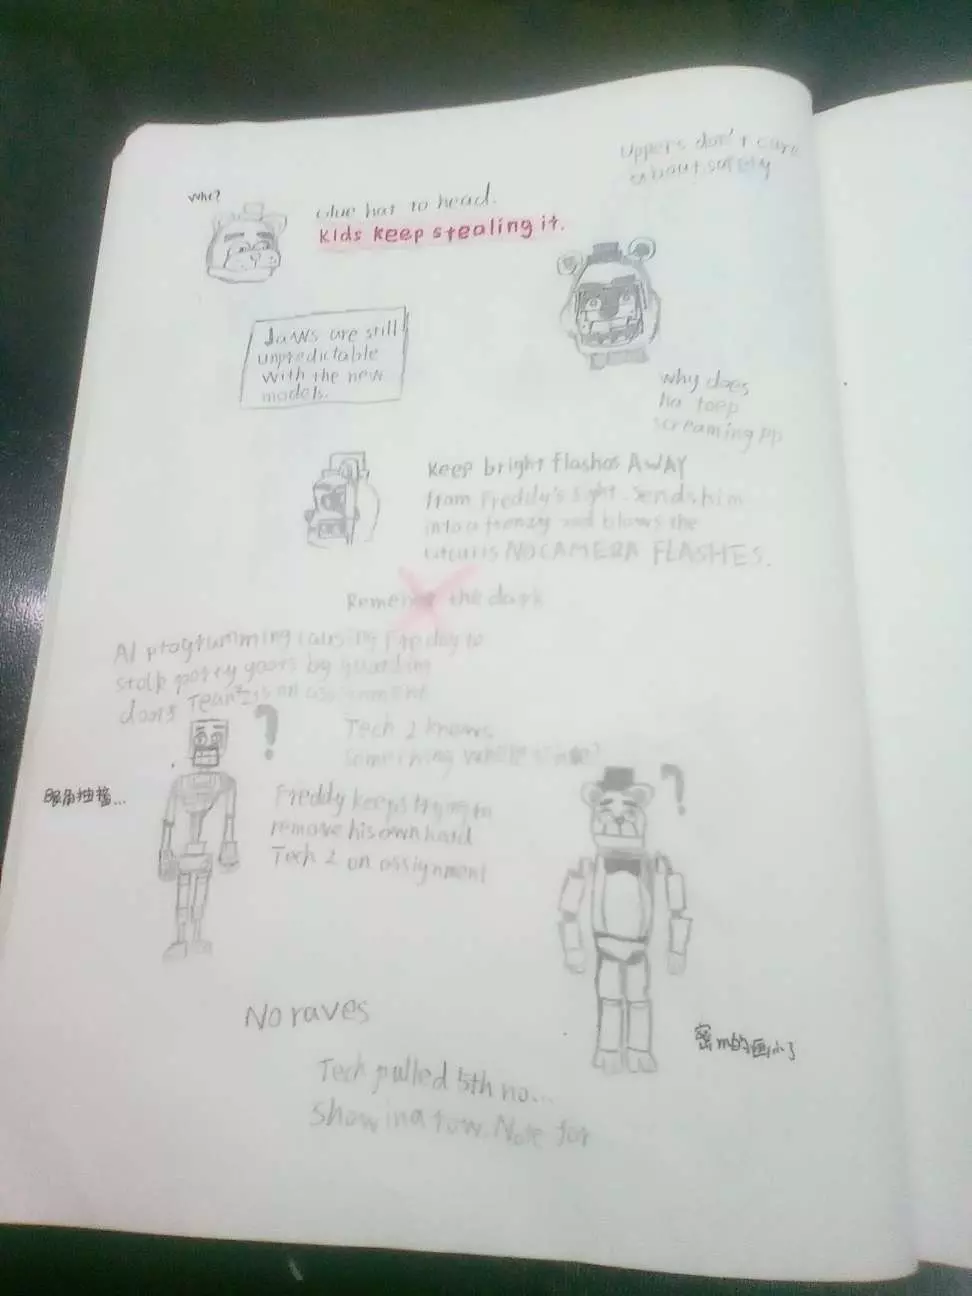 Uppers don't care
about safety
Why?
Glue hat to head.
Kids keep stealing it.
Jaws are still
unpredictable
with the new
models.
why does
he
screaming
Keep bright flashes AWAY
from Freddy's sight. Sends him
into a frenzy and blows the
NO CAMERA FLASHES.
the dark
AI programming causing Freddy to
by guarding
on assignment
?
Tech 2 knows
something
?
眼角抽搐...
Freddy keeps trying to
remove his own head
Tech 2 on assignment
No raves
的画小了
Tech pulled 5th no...
show in a row. Note for